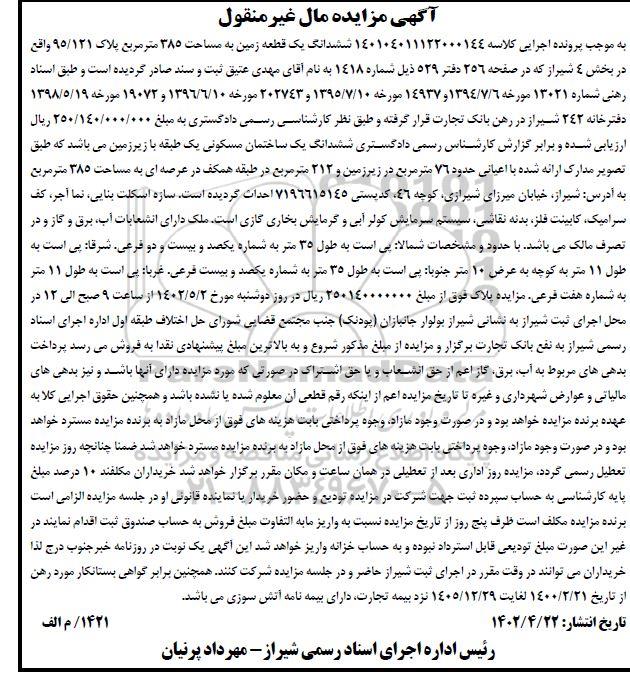 آگهی مزایده مال غیرمنقول
به موجب پرونده اجرایی کلاسه ۱۴۰۱۰۴۰۱۱۱۲۲۰۰۰۱۴۴ ششدانگ یک قطعه زمین به مساحت ۳۸۵ مترمربع پلاک ۹۵/۱۲۱ واقع
در بخش ۴ شیراز که در صفحه ۲۵۶ دفتر ۵۲۹ ذیل شماره ۱۴۱۸ به نام آقای مهدی عتیق ثبت و سند صادر گردیده است و طبق اسناد
رهنی شماره ۱۳۰۲۱ مورخه ۱۳۹۴/۷/۶ و ۱۴۹۳۷ مورخه ۱۳۹۵/۷/۱۰ و ۲۰۲۷۴۳ مورخه ۱۳۹۶/۶/۱۰ و ۱۹۰۷۲ مورخه ۱۳۹۸/۵/۱۹
دفترخانه ۲۴۲ شیراز در رهن بانک تجارت قرار گرفته و طبق نظر کارشناسی رسمی دادگستری به مبلغ ۲۵۰/۱۴۰/۰۰۰/۰۰۰ ریال
ارزیابی شده و برابر گزارش کارشناس رسمی دادگستری ششدانگ یک ساختمان مسکونی یک طبقه با زیرزمین می باشد که طبق
تصویر مدارک ارائه شده با اعیانی حدود ۷۶ مترمربع در زیرزمین و ۲۱۲ مترمربع در طبقه همکف در عرصه ای به مساحت ۳۸۵ مترمربع
به آدرس: شیراز، خیابان میرزای شیرازی، کوچه ۴۶، کدپستی ۷۱۹۶۶۱۵۱۴۵ احداث گردیده است. سازه اسکلت بنایی، نما آجر، کف
سرامیک، کابینت فلز، بدنه نقاشی، سیستم سرمایش کولر آبی و گرمایش بخاری گازی است. ملک دارای انشعابات آب، برق و گاز و در
تصرف مالک می باشد. با حدود و مشخصات شمالا: پی است به طول ۳۵ متر به شماره یکصد و بیست و دو فرعی. شرقا: پی است به
طول ۱۱ متر به کوچه به عرض ۱۰ متر جنوبا: پی است به طول ۳۵ متر به شماره یکصد و بیست فرعی. غربا: پی است به طول ۱۱ متر
به شماره هفت فرعی. مزایده پلاک فوق از مبلغ ۲۵۰۱۴۰۰۰۰۰۰۰ ریال در روز دوشنبه مورخ ۱۴۰۲/۵/۲ از ساعت ۹ صبح الی ۱۲ در
محل اجرای ثبت شیراز به نشانی شیراز بولوار جانبازان (پودنک) جنب مجتمع قضایی شورای حل اختلاف طبقه اول اداره اجرای اسناد
رسمی شیراز به نفع بانک تجارت برگزار و مزایده از مبلغ مذکور شروع و به بالاترین مبلغ پیشنهادی نقدا به فروش می رسد پرداخت
بدهی های مربوط به آب، برق، گاز اعم از حق انشعاب و یا حق اشتراک در صورتی که مورد مزایده دارای آنها باشد و نیز بدهی های
مالیاتی و عوارض شهرداری و غیره تا تاریخ مزایده اعم از اینکه رقم قطعی آن معلوم شده یا نشده باشد و همچنین حقوق اجرایی کلا به
عهده برنده مزایده خواهد بود و در صورت وجود مازاد، وجوه پرداختی بابت هزینه های فوق از محل مازاد به برنده مزایده مسترد خواهد
بود و در صورت وجود مازاد، وجوه پرداختی بابت هزینه های فوق از محل مازاد به برنده مزایده مسترد خواهد شد ضمنا چنانچه روز مزایده
تعطیل رسمی گردد، مزایده روز اداری بعد از تعطیلی در همان ساعت و مکان مقرر برگزار خواهد شد خریداران مکلفند ۱۰ درصد مبلغ
پایه کارشناسی به حساب سپرده ثبت جهت شرکت در مزایده تودیع و حضور خریدار یا نماینده قانونی او در جلسه مزایده الزامی است
برنده مزایده مکلف است ظرف پنج روز از تاریخ مزایده نسبت به واریز مابه التفاوت مبلغ فروش به حساب صندوق ثبت اقدام نمایند در
غیر این صورت مبلغ تودیعی قابل استرداد نبوده و به حساب خزانه واریز خواهد شد این آگهی یک نوبت در روزنامه خبرجنوب درج لذا
خریداران می توانند در وقت مقرر در اجرای ثبت شیراز حاضر و در جلسه مزایده شرکت کنند. همچنین برابر گواهی بستانکار مورد رهن
از تاریخ ۱۴۰۰/۲/۲۱ لغایت ۱۴۰۵/۱۲/۲۹ نزد بیمه تجارت، دارای بیمه نامه آتش سوزی می باشد.
تاریخ انتشار: ۱۴۰۲/۴/۲۲
۱۴۲۱/ م الف
رئیس اداره اجرای اسناد رسمی شیراز – مهرداد پرنیان
ParsNamadData
پایگاه اطلاع رسانی مناقصه و مزایده
۰۲۱-۸۸۳۴۹۶۷۰-۵